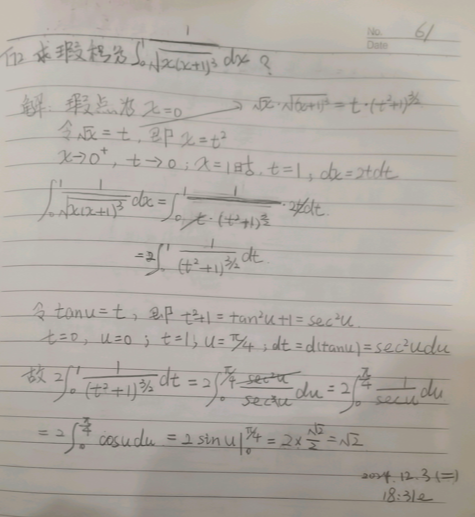 No. 61
Date
(1) 求瑕积分∫₀¹ 1/√(x(x+1)³) dx ?
解: 瑕点为 x=0 → √x·√(x+1)³ = t·(t²+1)^(3/2)
令√x=t, 即 x=t²
x→0⁺, t→0; x=1时, t=1, dx=2tdt
∫₀¹ 1/√(x(x+1)³) dx = ∫₀¹ 1/(t·(t²+1)^(3/2)) ·2tdt.
=2∫₀¹ 1/(t²+1)^(3/2) dt
令 tanu=t, 即 t²+1=tan²u+1=sec²u.
t=0, u=0; t=1, u=π/4; dt=d(tanu)=sec²udu
故 2∫₀¹ 1/(t²+1)^(3/2) dt = 2∫₀^(π/4) sec²u/sec³u du = 2∫₀^(π/4) 1/secu du
= 2∫₀^(π/4) cosudu = 2sinu|₀^(π/4) = 2×√2/2 = √2
2024.12.3(二)
18:31